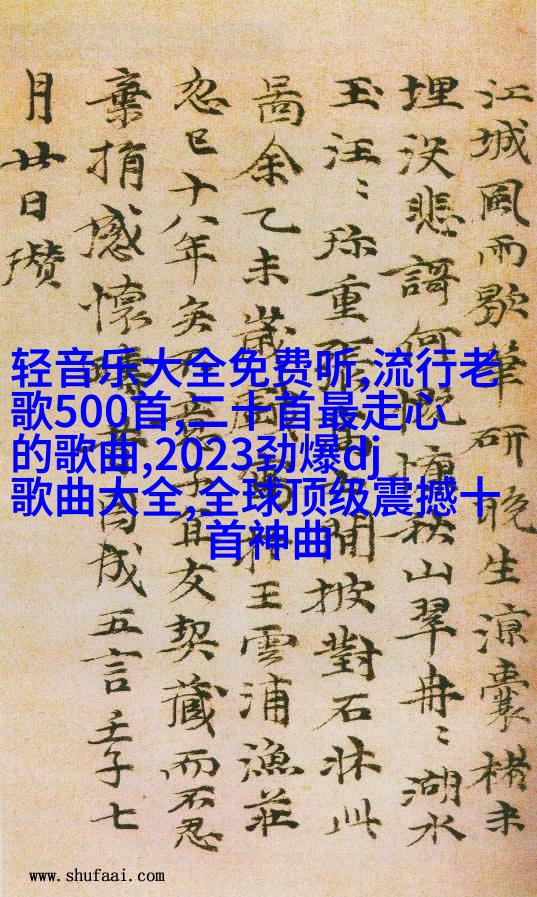 江城風雨歇筆研晚生涼囊楮未
埋没悲謌何慨慷秋山翠冉〻湖水
玉汪〻珎重間披對石牀此
啚余乙未歲王雲浦漁莊
忽已十八年矣不意子宜友契藏而不忍
棄捐感懷因成五言壬子七
月廿日瓚
轻音乐大全免费听,流行老
歌500首,二十首最走心
的歌曲,2023劲爆dj
歌曲大全,全球顶级震撼十
首神曲
www.shufaai.com